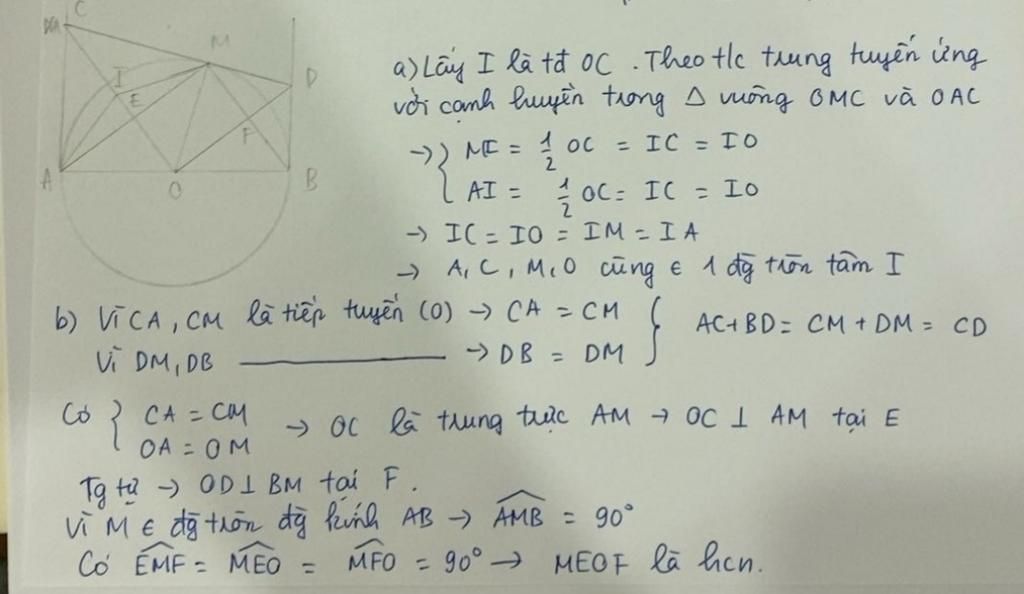 C
M
I
E
D
F
A
O
B
a) Lấy I là tđ OC . Theo t/c trung tuyến ứng
với cạnh huyền trong Δ vuông OMC và OAC
→ { MI = 1/2 OC = IC = IO
AI = 1/2 OC = IC = IO
→ IC = IO = IM = IA
→ A, C, M, O cũng ∈ 1 đg tròn tâm I
b) Vì CA, CM là tiếp tuyến (O) → CA = CM } AC+BD = CM + DM = CD
Vì DM, DB ——— → DB = DM
Có { CA = CM → OC là trung trực AM → OC ⊥ AM tại E
OA = OM
Tg tự → OD ⊥ BM tại F.
Vì M ∈ đg tròn đg kính AB → \widehat{AMB} = 90°
Có \widehat{EMF} = \widehat{MEO} = \widehat{MFO} = 90° → MEOF là hcn.